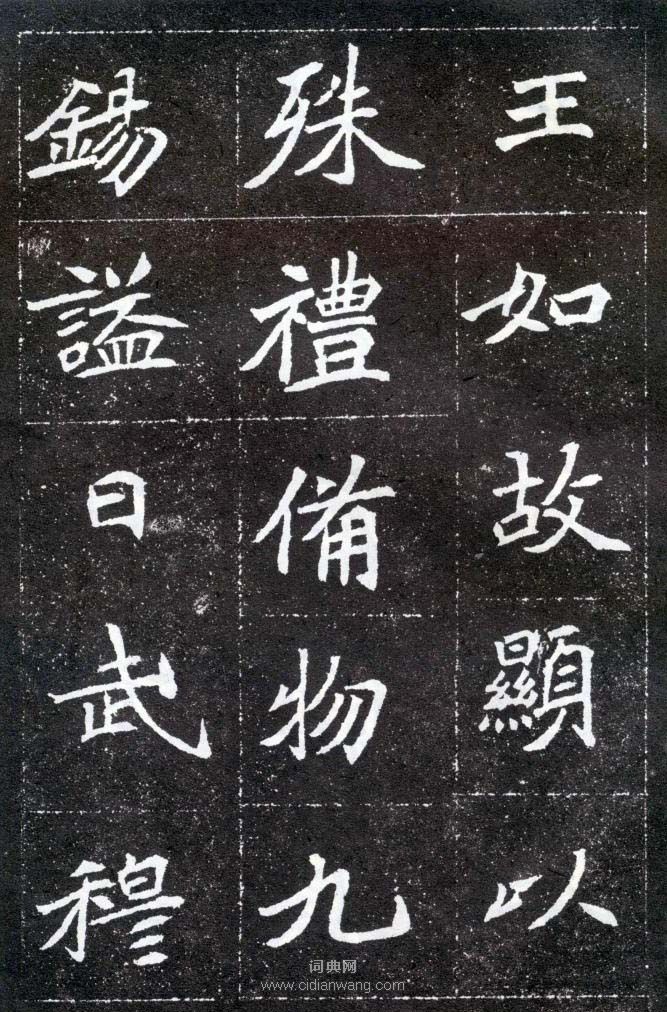 王如故顯以
殊禮備物九
錫謚曰武穆
词典网
www.cidianwang.com